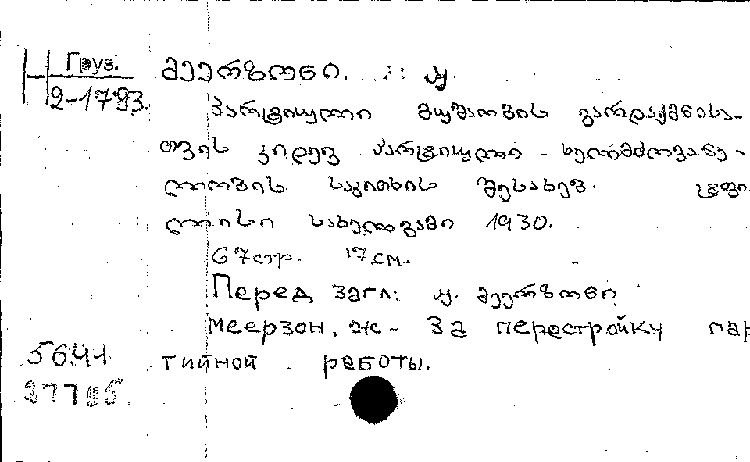 Груз.
2-1793.
მეერზონი. ჟ
პარტიული მუშაობის გარდაქმნისა-
თვის კიდევ პარტიული - ხელმძღვანე-
ლობის საკითხის შესახებ. ტფი
ლისი სახელგამი 1930.
67стр. 17см.
Перед загл: ჟ. მეერზონი
Меерзон, Ж- За перестройку пар
тийной работы.